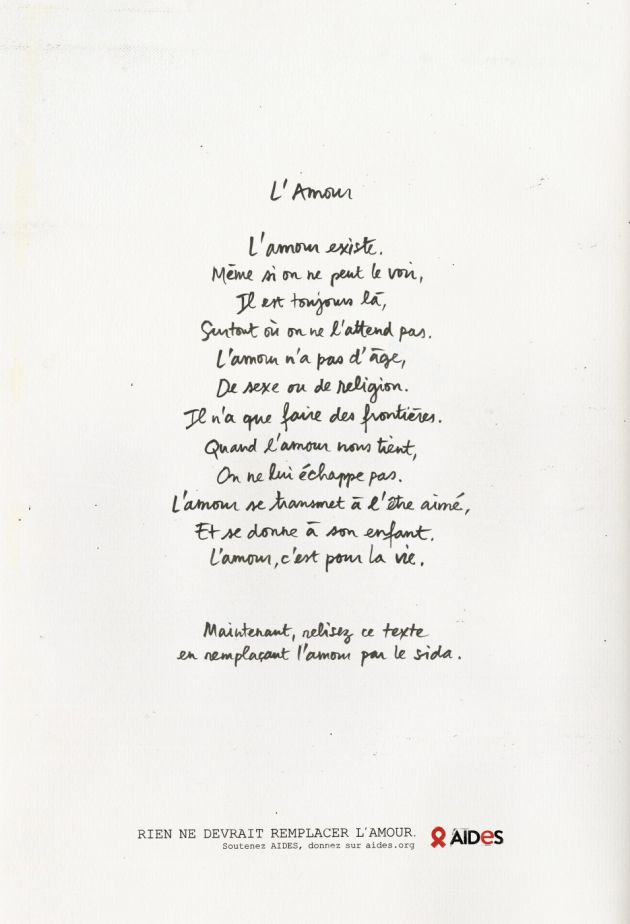 L'Amour
L'amour existe.
Même si on ne peut le voir,
Il est toujours là,
Surtout où on ne l'attend pas.
L'amour n'a pas d'âge,
De sexe ou de religion.
Il n'a que faire des frontières.
Quand l'amour nous tient,
On ne lui échappe pas.
L'amour se transmet à l'être aimé,
Et se donne à son enfant.
L'amour, c'est pour la vie.
Maintenant, relisez ce texte
en remplaçant l'amour par le sida.
RIEN NE DEVRAIT REMPLACER L'AMOUR.
Soutenez AIDES, donnez sur aides.org
AIDeS